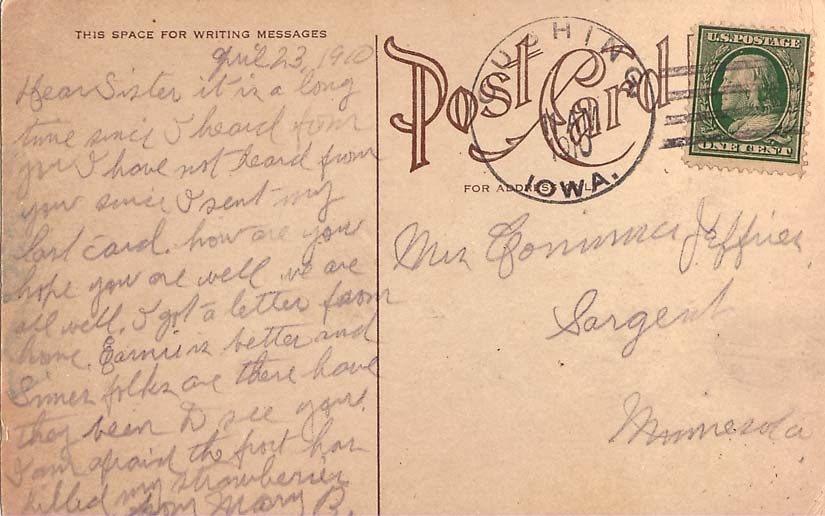 THIS SPACE FOR WRITING MESSAGES
April 23, 1910
Dear Sister it is a long
time since I heard from
you I have not heard from
you since I sent my
last card. how are you
hope you are well we are
all well. I got a letter from
home. is better and
folks are there have
they been to see you.
I am afraid the frost has
killed my strawberries
from Mary B.
Post Card
CUSHING
1910
IOWA.
U.S. POSTAGE
ONE CENT
FOR ADDRESS ONLY
Jeffries
Sargent
Minnesota